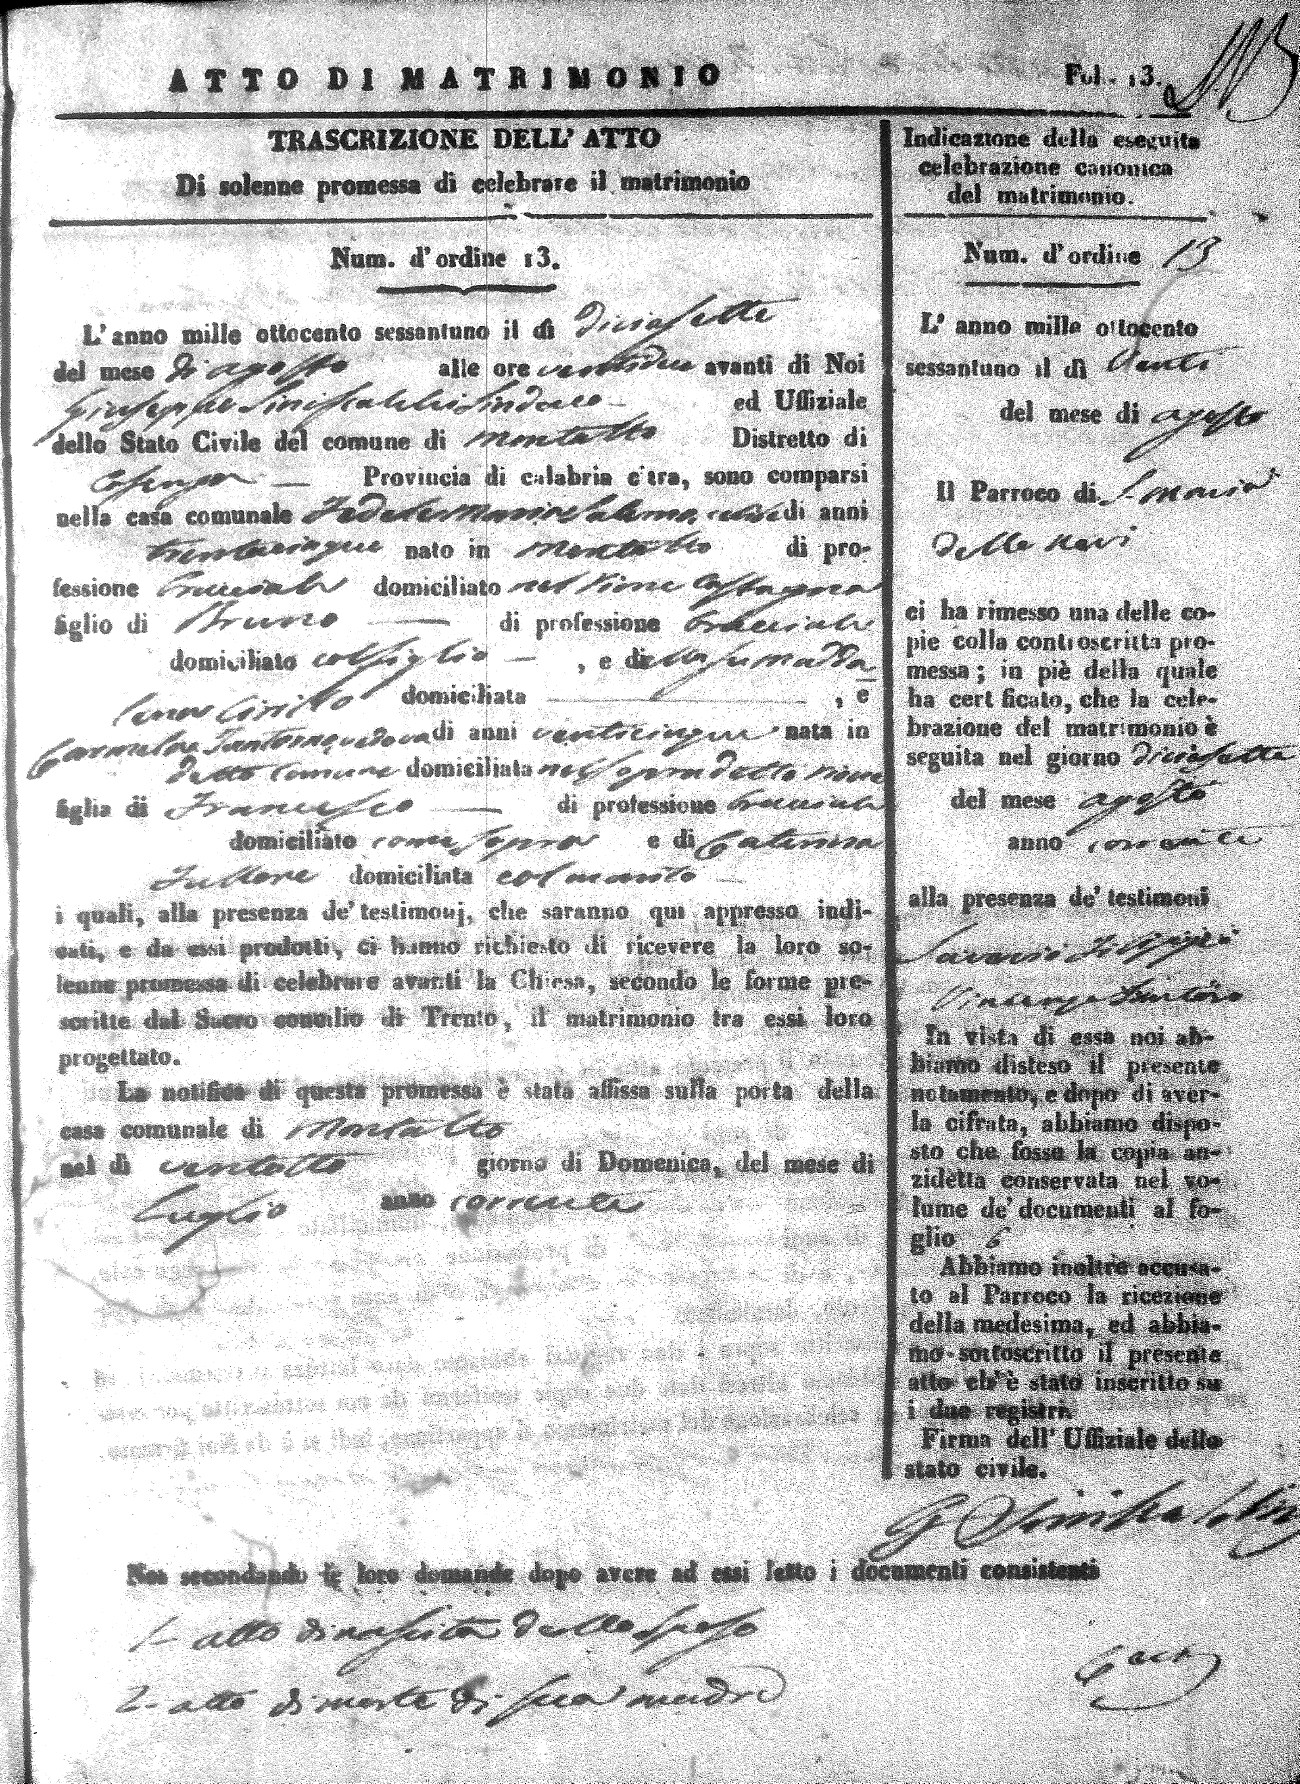 ATTO DI MATRIMONIO
Fol. 13.
TRASCRIZIONE DELL' ATTO
Di solenne promessa di celebrare il matrimonio
Num. d' ordine 13.
L' anno mille ottocento sessantuno il dì diciasette
del mese di agosto alle ore ventidue avanti di Noi
Giuseppe Sinibaldi Sindaco ed Uffiziale
dello Stato Civile del comune di Montalto Distretto di
Cosenza Provincia di calabria citra, sono comparsi
nella casa comunale Fedele Maria Salerno di anni
trentacinque nato in Montalto di pro-
fessione bracciale domiciliato nel rione
figlio di Bruno di professione bracciale
domiciliato col figlio , e della fu Madda
lena Cirillo domiciliata , e
Carmela Santoro vedova di anni venticinque nata in
detto comune domiciliata nel sopradetto rione
figlia di Francesco di professione bracciale
domiciliato come sopra e di Caterina
domiciliata col marito
i quali, alla presenza de' testimonj, che saranno qui appresso indi-
cati, e da essi prodotti, ci hanno richiesto di ricevere la loro so-
lenne promessa di celebrare avanti la Chiesa, secondo le forme pre-
scritte dal Sacro concilio di Trento, il matrimonio tra essi loro
progettato.
La notifica di questa promessa è stata affissa sulla porta della
casa comunale di Montalto
nel dì ventotto giorno di Domenica, del mese di
Luglio anno corrente
Indicazione della eseguita
celebrazione canonica
del matrimonio.
Num. d' ordine 13
L' anno mille ottocento
sessantuno il dì Venti
del mese di agosto
Il Parroco di S. Maria
della Nevi
ci ha rimesso una delle co-
pie colla controscritta pro-
messa; in piè della quale
ha cert ficato, che la cele-
brazione del matrimonio è
seguita nel giorno diciasette
del mese agosto
anno corrente
alla presenza de' testimoni
Saverio Filippi
Vincenzo Santoro
In vista di essa noi ab-
biamo disteso il presente
notamento, e dopo di aver-
la cifrata, abbiamo dispo-
sto che fosse la copia an-
zidetta conservata nel vo-
lume de' documenti al fo-
glio 6
Abbiamo inoltre accusa-
to al Parroco la ricezione
della medesima, ed abbia-
mo sottoscritto il presente
atto ch' è stato inscritto su
i due registri.
Firma dell' Uffiziale dello
stato civile.
G Sinibaldi
Noi secondando le loro domande dopo avere ad essi letto i documenti consistenti
1- atto di nascita dello sposo
2- atto di morte di sua madre